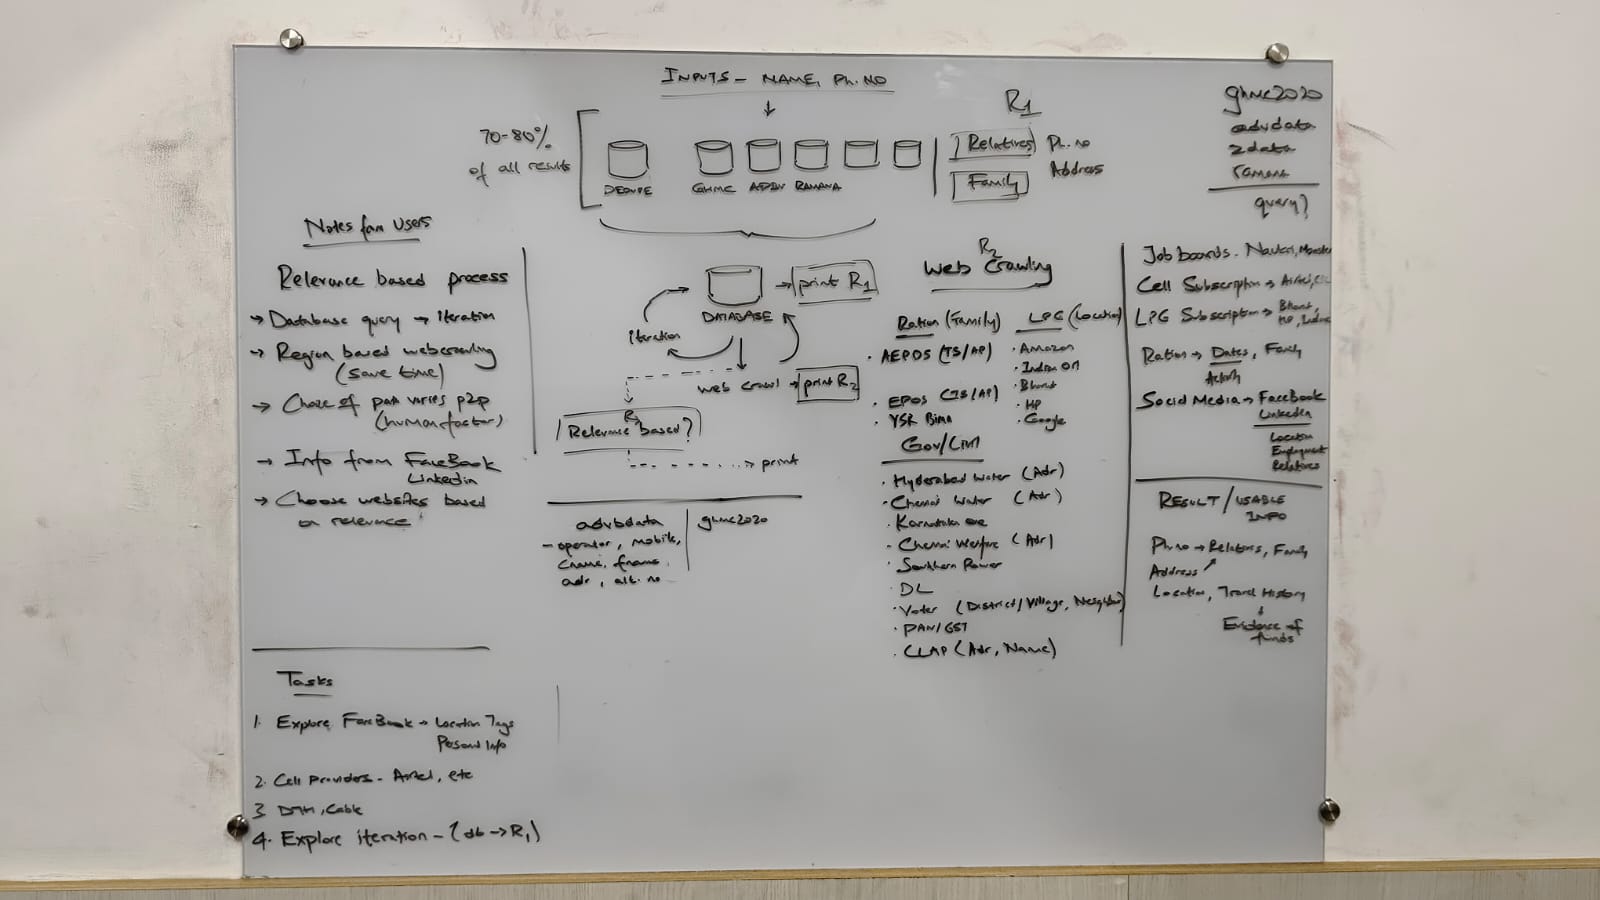 INPUTS - NAME, Ph. NO
70-80%
of all results
GHMC
RAMANA
R1
Relatives
Family
Ph. no
Address
ghmc2020
advdata
2data
ramana
query?
Notes from Users
Relevance based process
→ Database query → iteration
→ Region based webcrawling
(save time)
→ Choice of path varies p2p
(human factor)
→ Info from FaceBook
Linkedin
→ Choose websites based
on relevance
DATABASE
→ print R1
iteration
web crawl → print R2
R3
Relevance based?
print
advbdata
- operator, mobile,
cname, fname,
adr, alt. no
ghmc2020
R2
Web Crawling
Ration (Family)
· AEPOS (TS/AP)
· EPOS (TS/AP)
· YSR Bima
LPG (Location)
· Amazon
· Indian Oil
· Bharat
· HP
· Google
Gov/Civil
· Hyderabad Water (Adr)
· Chennai Water (Adr)
· Karnataka one
· Chennai Welfare (Adr)
· Southern Power
· DL
· Voter (District/Village, Neighbor)
· PAN/GST
· CLAP (Adr, Name)
Job boards - Naukri, Monster
Cell Subscription → Airtel, etc
LPG Subscription → Bharat,
HP, Indane
Ration → Dates, Family
Activity
Social Media → Facebook
Linkedin
Location
Employment
Relatives
RESULT / USABLE
INFO
Ph. no → Relatives, Family
Address
Location, Travel History
Evidence of
funds
Tasks
1. Explore FaceBook → Location Tags
Personal Info
2. Cell Providers - Airtel, etc
3 DTH, Cable
4. Explore iteration - (db → R1)